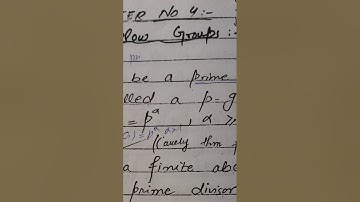 ER No 4:-
low Groups:-
be a prime
lled a p-g
= p^α , α ≥
(Cauchy thm
a finite abe
prime divisor